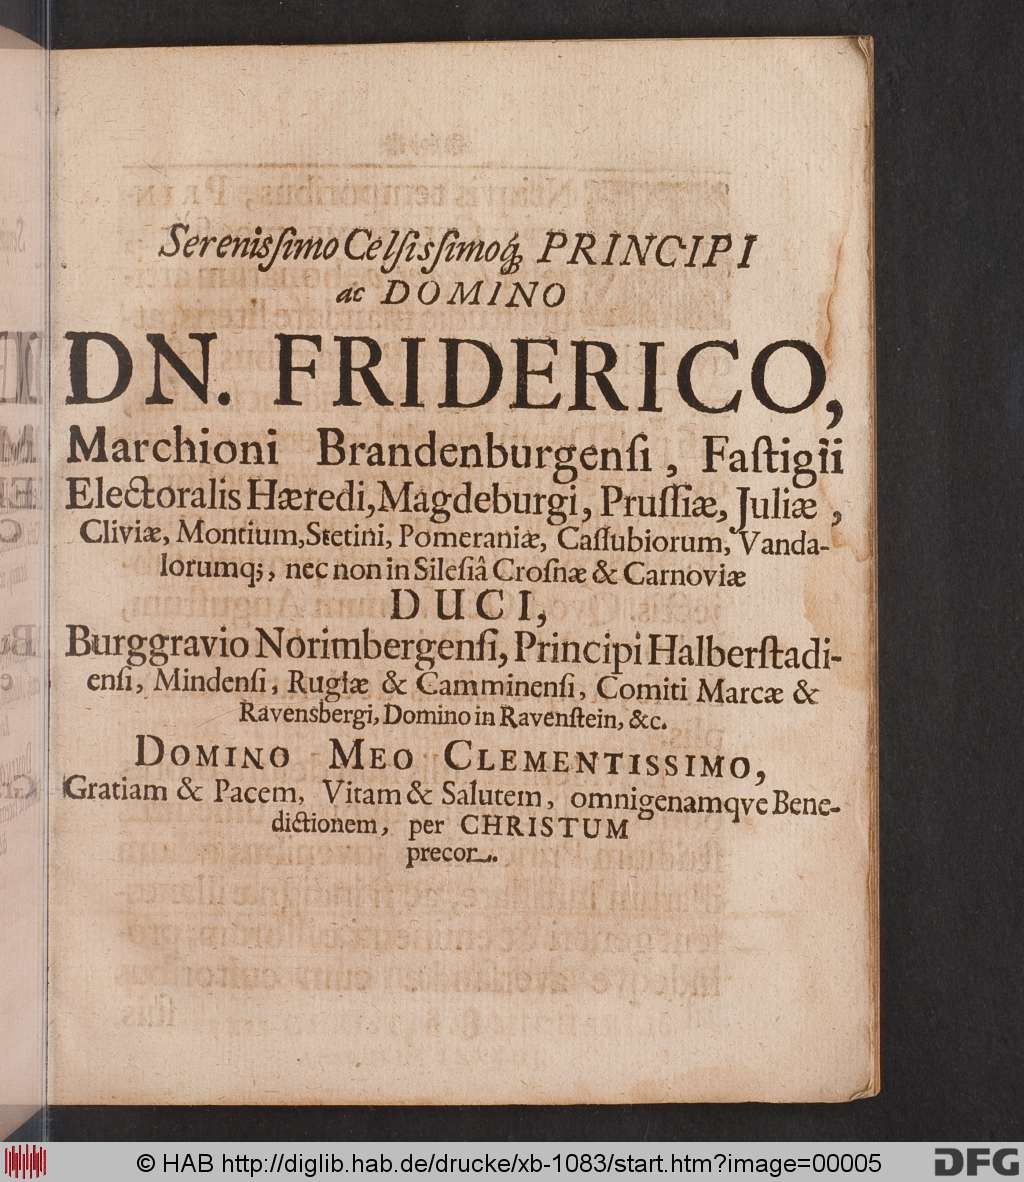 Serenisſimo Celſisſimoq́; PRINCIPI
ac DOMINO
DN. FRIDERICO,
Marchioni Brandenburgenſi, Faſtigii
Electoralis Hæredi, Magdeburgi, Pruſſiæ, Juliæ,
Cliviæ, Montium, Stetini, Pomeraniæ, Caſſubiorum, Vanda-
lorumq;, nec non in Sileſiâ Croſnæ & Carnoviæ
DUCI,
Burggravio Norimbergenſi, Principi Halberſtadi-
enſi, Mindenſi, Rugiæ & Camminenſi, Comiti Marcæ &
Ravensbergi, Domino in Ravenſtein, &c.
DOMINO MEO CLEMENTISSIMO,
Gratiam & Pacem, Vitam & Salutem, omnigenamqve Bene-
dictionem, per CHRISTUM
precor.
© HAB http://diglib.hab.de/drucke/xb-1083/start.htm?image=00005
DFG